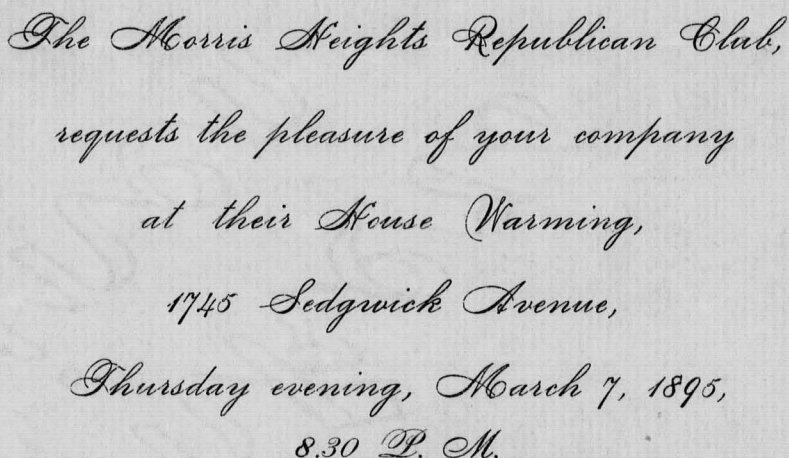 The Morris Heights Republican Club,
requests the pleasure of your company
at their House Warming,
1745 Sedgwick Avenue,
Thursday evening, March 7, 1895,
8.30 P. M.